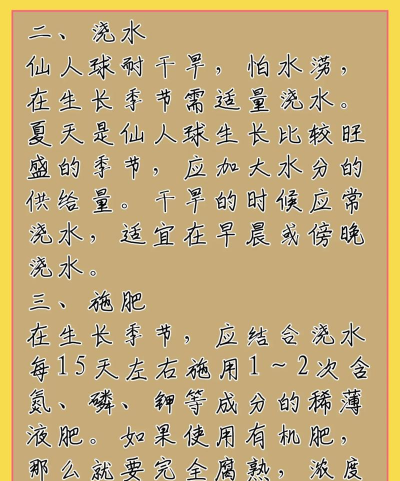 二、浇水
仙人球耐干旱，怕水涝，
在生长季节需适量浇水。
夏天是仙人球生长比较旺
盛的季节，应加大水分的
供给量。干旱的时候应常
浇水，适宜在早晨或傍晚
浇水。
三、施肥
在生长季节，应结合浇水
每15天左右施用1~2次含
氮、磷、钾等成分的稀薄
液肥。如果使用有机肥，
那么就要完全腐熟，浓度